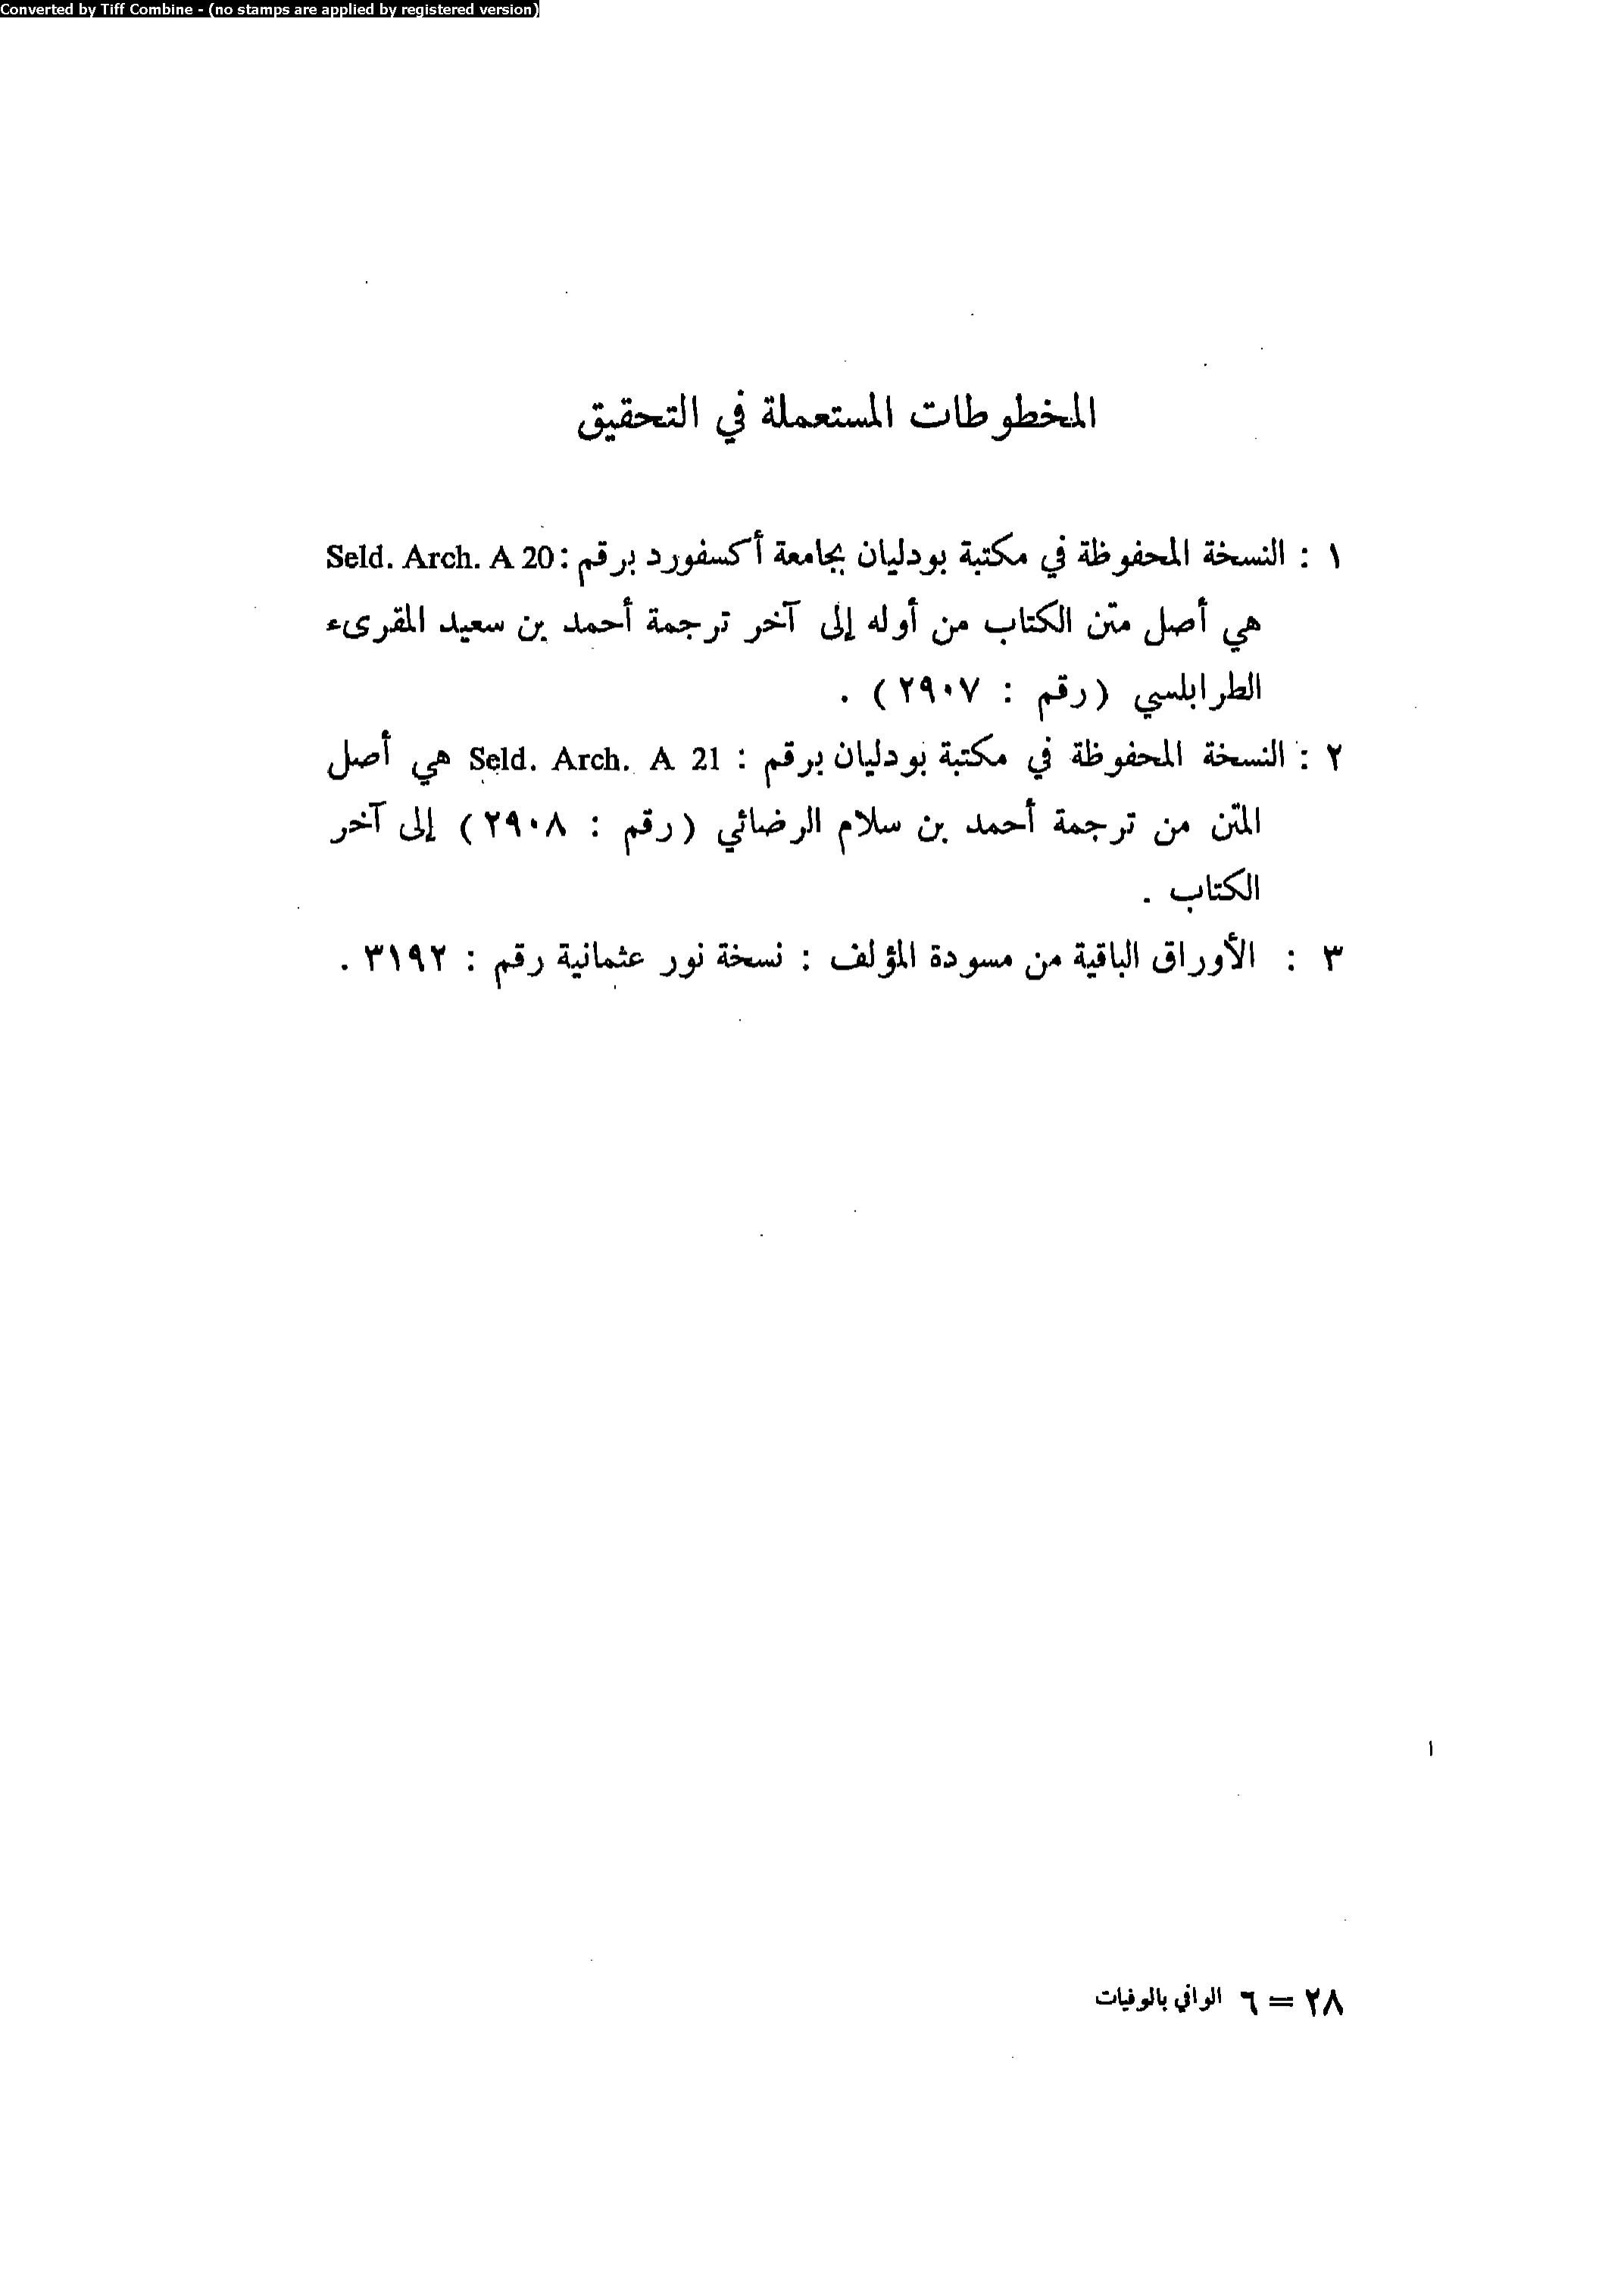 Converted by Tiff Combine - (no stamps are applied by registered version)
المخطوطات المستعملة في التحقيق
١ : النسخة المحفوظة في مكتبة بودليان بجامعة أكسفورد برقم : Seld. Arch. A 20
هي أصل متن الكتاب من أوله إلى آخر ترجمة أحمد بن سعيد المقرىء
الطرابلسي (رقم : ٢٩٠٧) .
٢ : النسخة المحفوظة في مكتبة بودليان برقم : Seld. Arch. A 21 هي أصل
المتن من ترجمة أحمد بن سلام الرضائي (رقم : ٢٩٠٨) إلى آخر
الكتاب .
٣ : الأوراق الباقية من مسودة المؤلف : نسخة نور عثمانية رقم : ٣١٩٢ .
٢٨ = ٦ الوافي بالوفيات